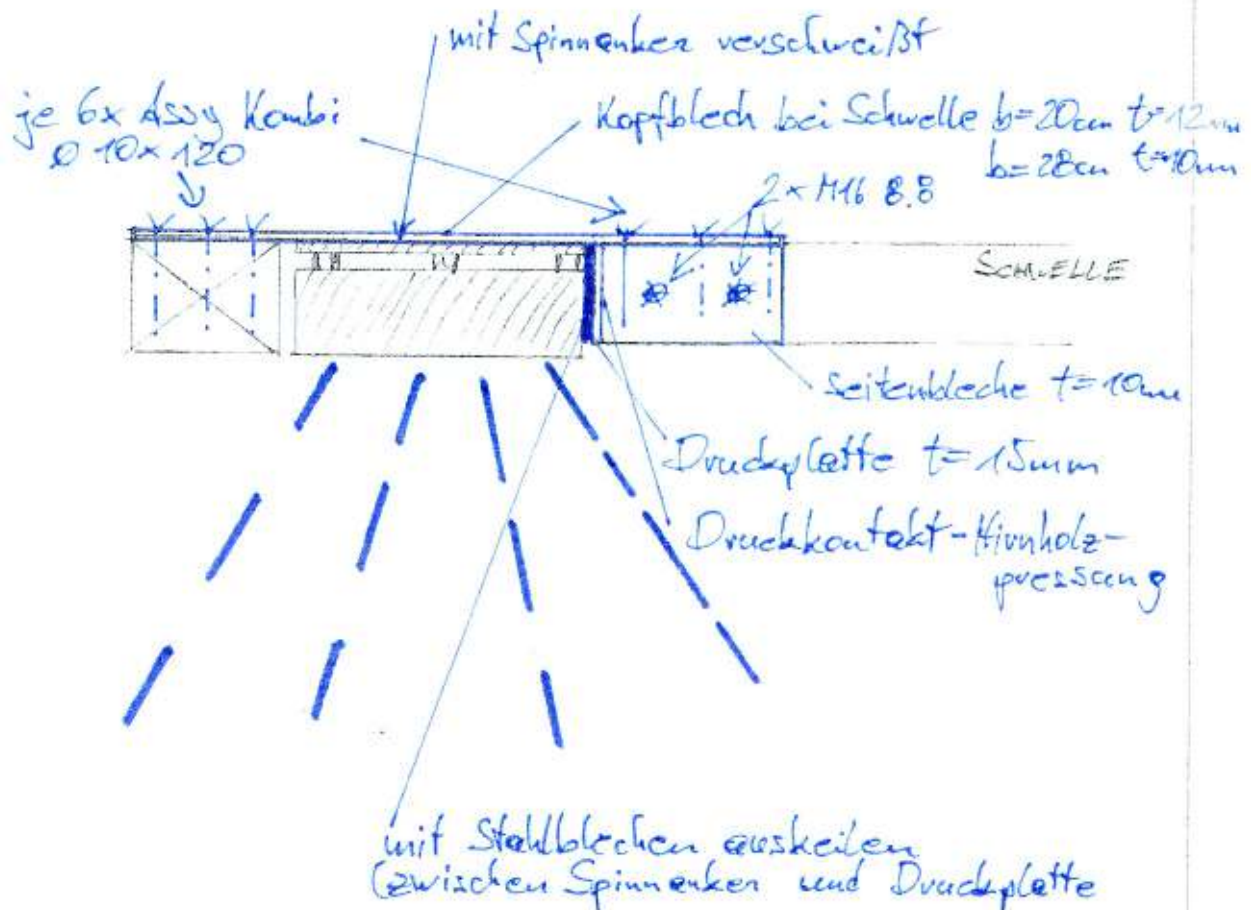 mit Spinnanker verschweißt
je 6x Assy Kombi
Ø 10x120
Kopfblech bei Schwelle b=20cm t=12mm
b=28cm t=10mm
2x M16 8.8
SCHWELLE
Seitenbleche t=10mm
Druckplatte t=15mm
Druckkontakt-Hirnholz-
pressung
mit Stahlblechen auskeilen
(zwischen Spinnanker und Druckplatte